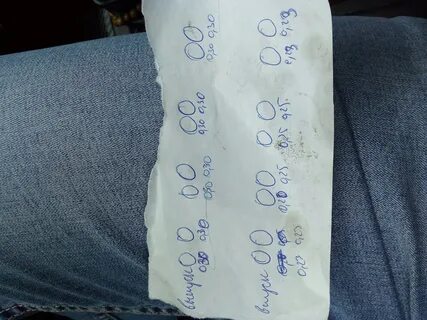 выпуск
0,30 0,30 0,30 0,30 0,30 0,30 0,30 0,30
впуск
0,23 0,23 0,20 0,25 0,25 0,25 0,23 0,23